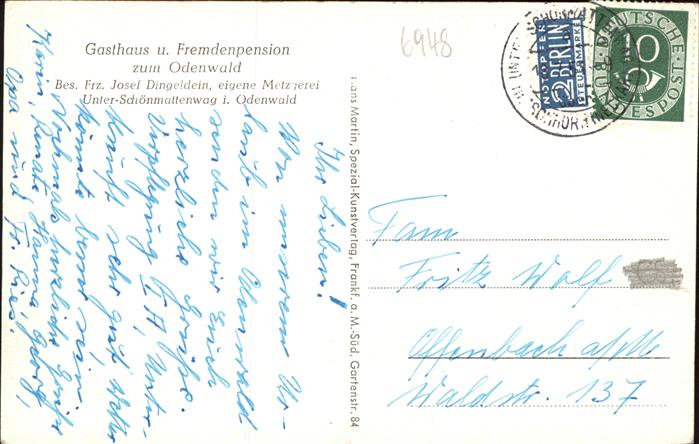 Gasthaus u. Fremdenpension
zum Odenwald
Bes. Frz. Josef Dingeldein, eigene Metzgerei
Unter-Schönmattenwag i. Odenwald
6948
Ihr Lieben!
Von unserem Ur-
laub im Odenwald
senden wir Euch
herzliche Grüße.
Verpflegung I A, Unter-
kunft sehr gut, Wetter
könnte besser sein.
Nochmals herzliche Grüße
Karin, Renate, Hanna, Georg,
Opa und Fr. Ries.
Hans Martin, Spezial-Kunstverlag, Frankf. a. M.-Süd, Gartenstr. 84
NOTOPFER
2 BERLIN
STEUERMARKE
DEUTSCHE
10
BUNDESPOST
Fam
Fritz Wolf
Offenbach a/M
Waldstr. 137